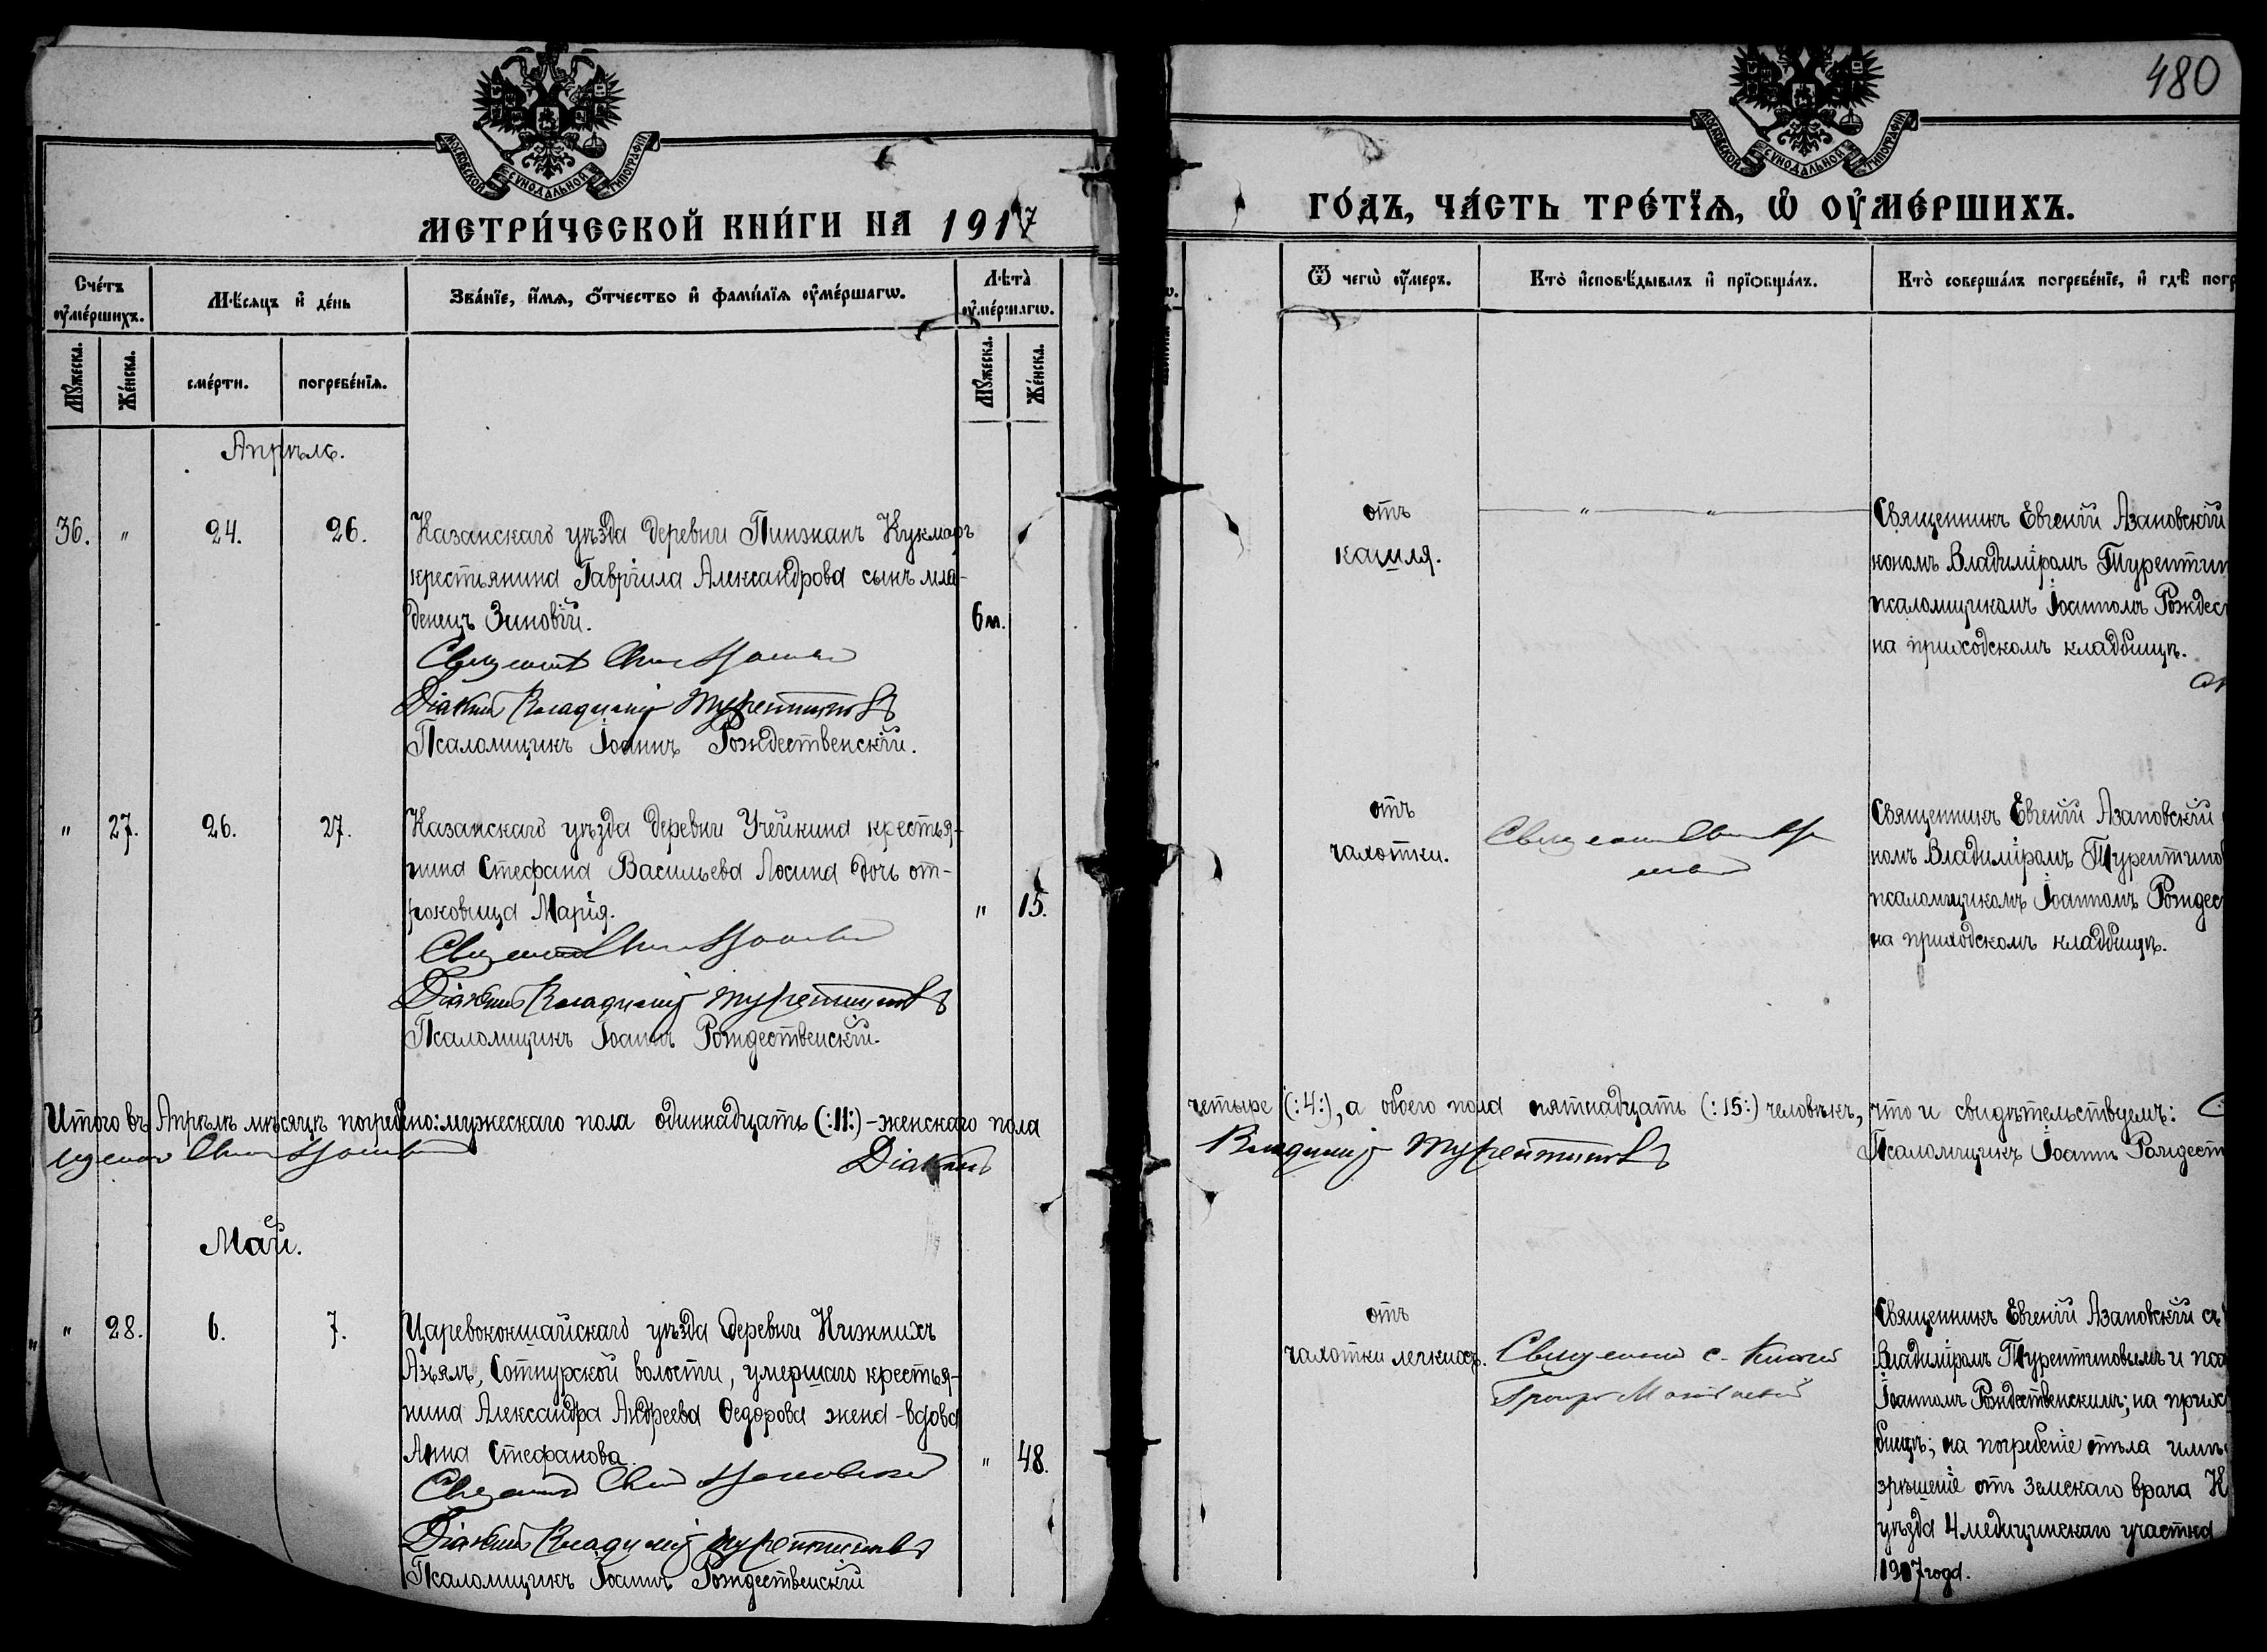 480
МОСКОВСКОЙ СУНОДАЛЬНОЙ ТИПОГРАФІИ
МОСКОВСКОЙ СУНОДАЛЬНОЙ ТИПОГРАФІИ
МЕТРИ́ЧЕСКОЙ КНИ́ГИ НА 1917
ГО́ДЪ, ЧА́СТЬ ТРЕ́ТЇѦ, Ѡ҆ ОУ҆МЕ́РШИХЪ.
Сче́тъ оу҆ме́ршихъ.
Мѣ́сѧцъ и҆ де́нь
Зва́нїе, и҆́мѧ, ѻ҆́тчество и҆ фами́лїѧ оу҆ме́ршагѡ.
Лѣ́та оу҆ме́ршагѡ.
Ѿ чегѡ̀ оу҆́меръ.
Кто̀ и҆сповѣ́дывалъ и҆ прїѡбща́лъ.
Кто̀ соверша́лъ погребе́нїе, и҆ гдѣ̀ погр
Мꙋ́жеска.
Же́нска.
сме́рти.
погребе́нїѧ.
Мꙋ́жеска.
Же́нска.
Апрѣль.
36. " 24. 26.
Казанскаго уѣзда деревни Пинжанъ Кукморъ
крестьянина Гавріила Александрова сынъ мла-
денецъ Зиновій.
6 м.
Священникъ
Діаконъ Владиміръ Турентиновъ
Псаломщикъ Іоаннъ Рождественскій.
отъ
кашля.
" "
Священникъ Евгеній Азановскій
кономъ Владиміромъ Турентин
псаломщикомъ Іоанномъ Рождес
на приходскомъ кладбищѣ.
" 27. 26. 27.
Казанскаго уѣзда деревни Учейкина крестья-
нина Стефана Васильева Лосина дочь от-
роковица Марія.
" 15.
Священникъ
Діаконъ Владиміръ Турентиновъ
Псаломщикъ Іоаннъ Рождественскій.
отъ
чахотки.
Священникъ
Священникъ Евгеній Азановскій
номъ Владиміромъ Турентино
псаломщикомъ Іоанномъ Рождес
на приходскомъ кладбищѣ.
Итого въ Апрѣлѣ мѣсяцѣ погребено: мужескаго пола одиннадцать (:11:) - женскаго пола
четыре (:4:), а обоего пола пятнадцать (:15:) человѣкъ, что и свидѣтельствуемъ: С
Діаконъ
Владиміръ Турентиновъ
Псаломщикъ Іоаннъ Рождест
Май.
" 28. 6. 7.
Царевококшайскаго уѣзда деревни Нижнихъ
Азъялъ, Сотнурской волости, умершаго крестья-
нина Александра Андреева Ѳедорова жена - вдова
Анна Стефанова.
" 48.
Священникъ
Діаконъ Владиміръ Турентиновъ
Псаломщикъ Іоаннъ Рождественскій
отъ
чахотки легкихъ.
Священникъ с.
Священникъ Евгеній Азановскій съ
Владиміромъ Турентиновымъ и пса
Іоанномъ Рождественскимъ; на прих
бищѣ; на погребеніе тѣла имѣ
зрѣшеніе отъ земскаго врача К
уѣзда 4 медицинскаго участка
1917 года.